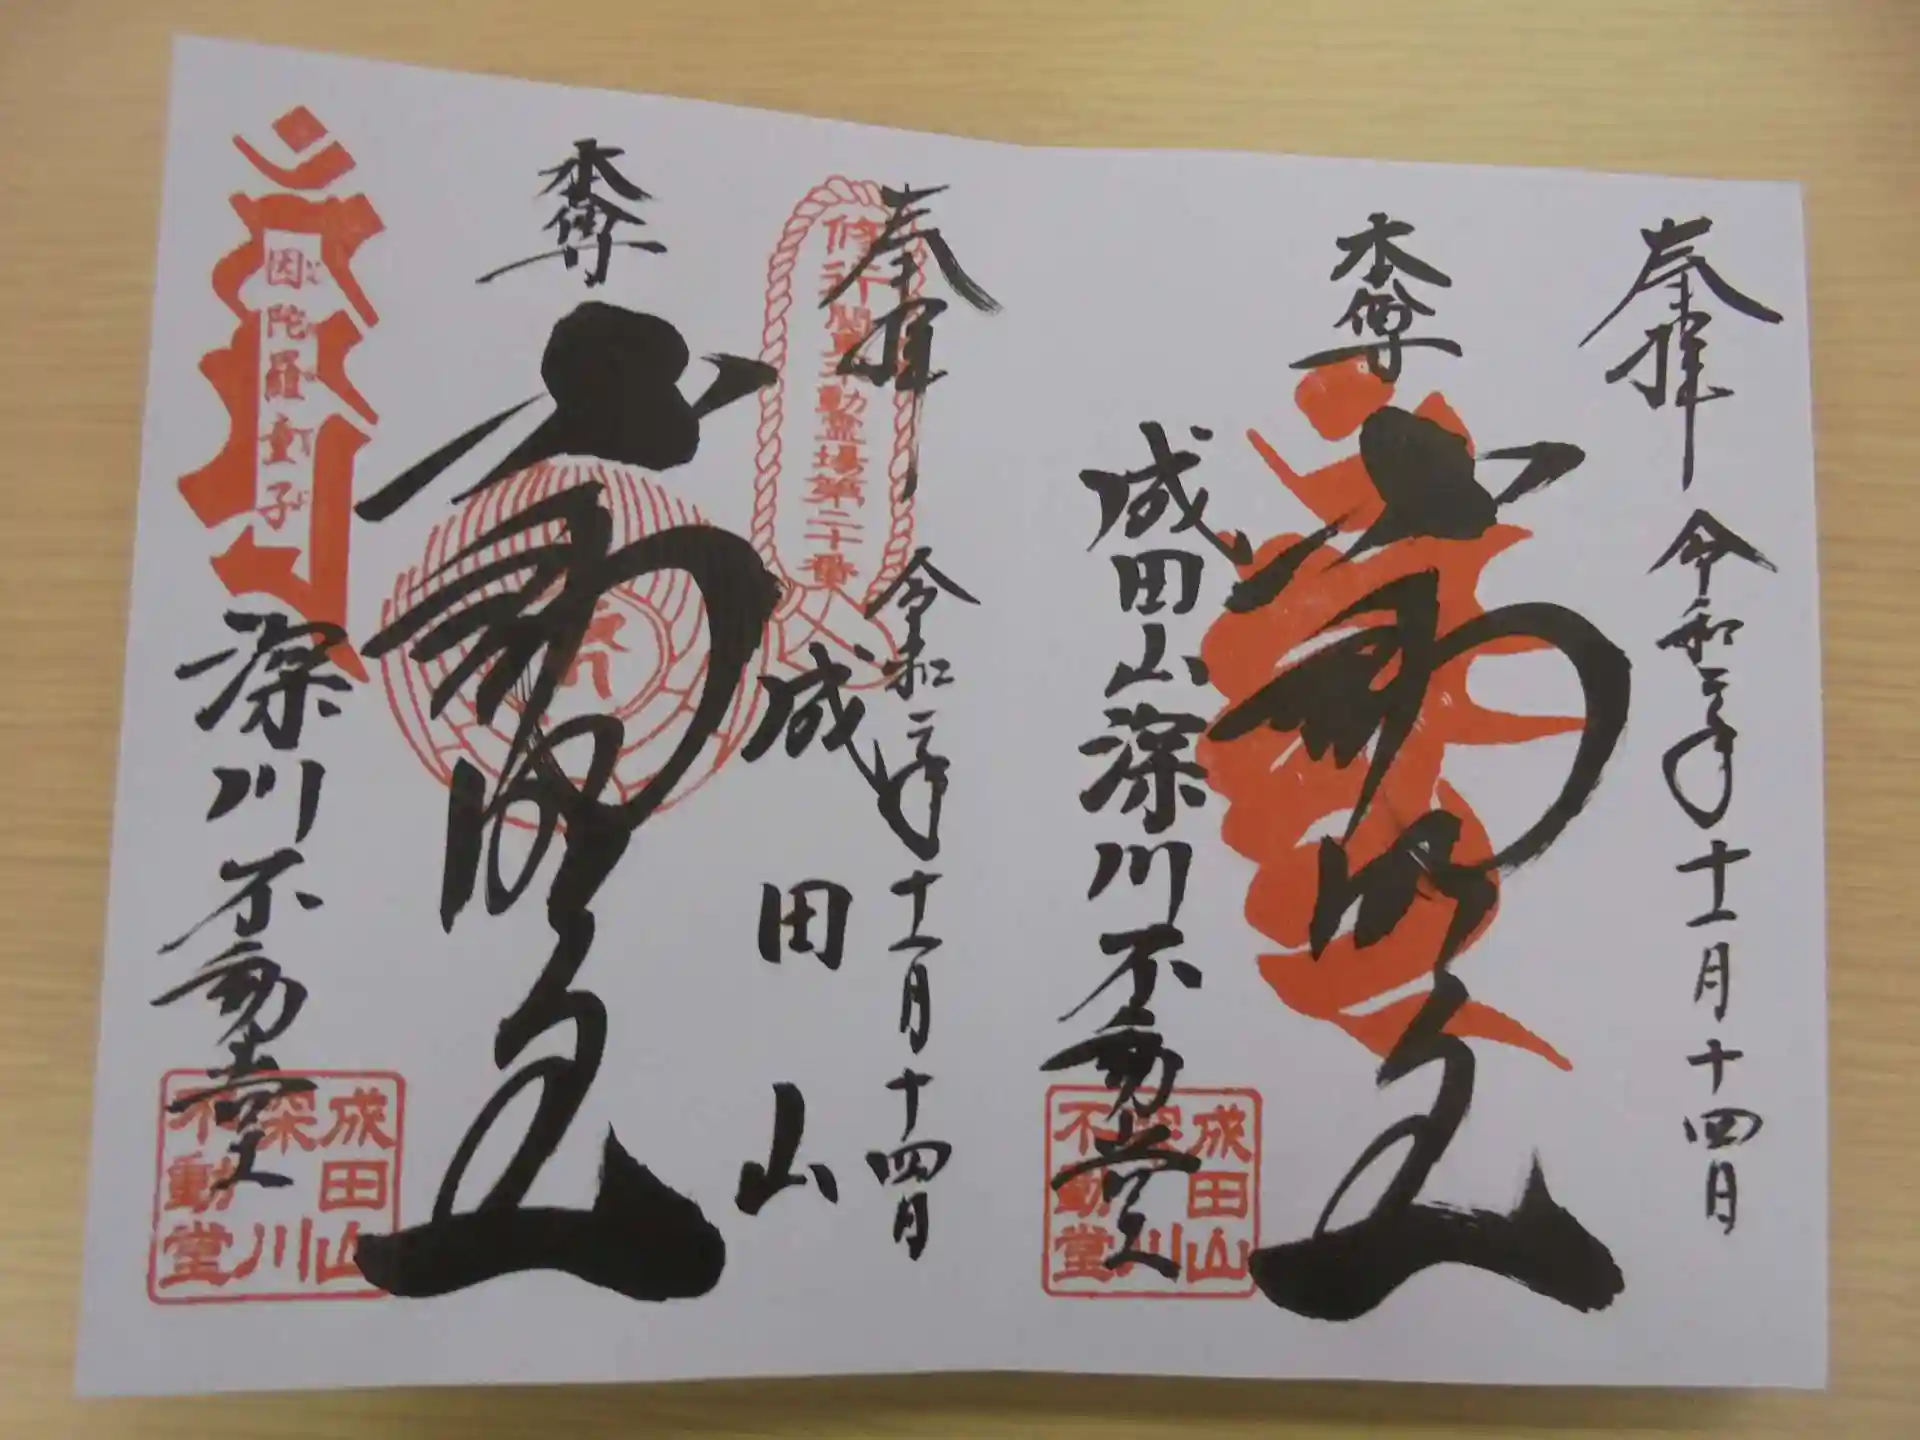 奉拝
令和二年十一月十四日
本尊
不動明王
成田山深川不動堂
成田山
深川
不動堂
奉拝
令和二年十一月十四日
修行関東不動霊場第二十番
成田山
本尊
不動明王
因陀羅童子
深川不動堂
成田山
深川
不動堂